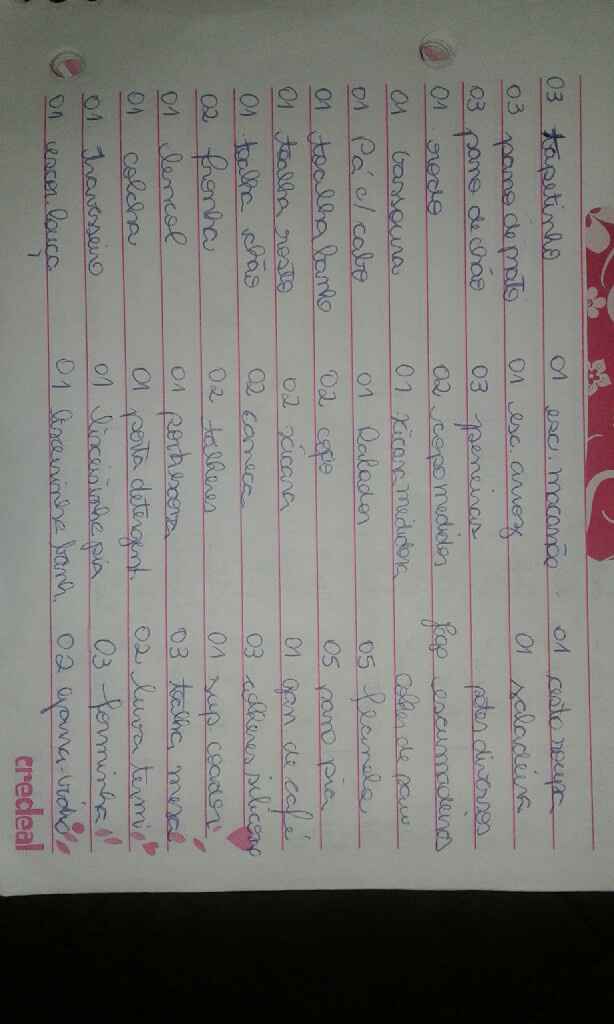 03 tapetinho 01 esc. macarrão 01 cesto roupa
03 pano de prato 01 esc. arroz 01 saladeira
03 pano de chão 03 peneiras potes diversos
01 rodo 02 copo medidor escumadeiras
01 vassoura 01 xicara medidora colher de pau
01 Pá c/ cabo 01 Ralador 05 flanela
01 toalha banho 02 copo 05 pano pia
01 toalha rosto 02 xícara 01 gar de café
01 toalha chão 02 caneca 03 colheres silicone
02 fronha 02 talheres 01 sup coador
01 lencol 01 03 toalha mesa
01 colcha 01 porta detergent. 02 luva termi
01 travesseiro 01 lixeirinha pia 03 forminha
01 escor louça 01 lixeirinha banh. 02 -vidro
credeal